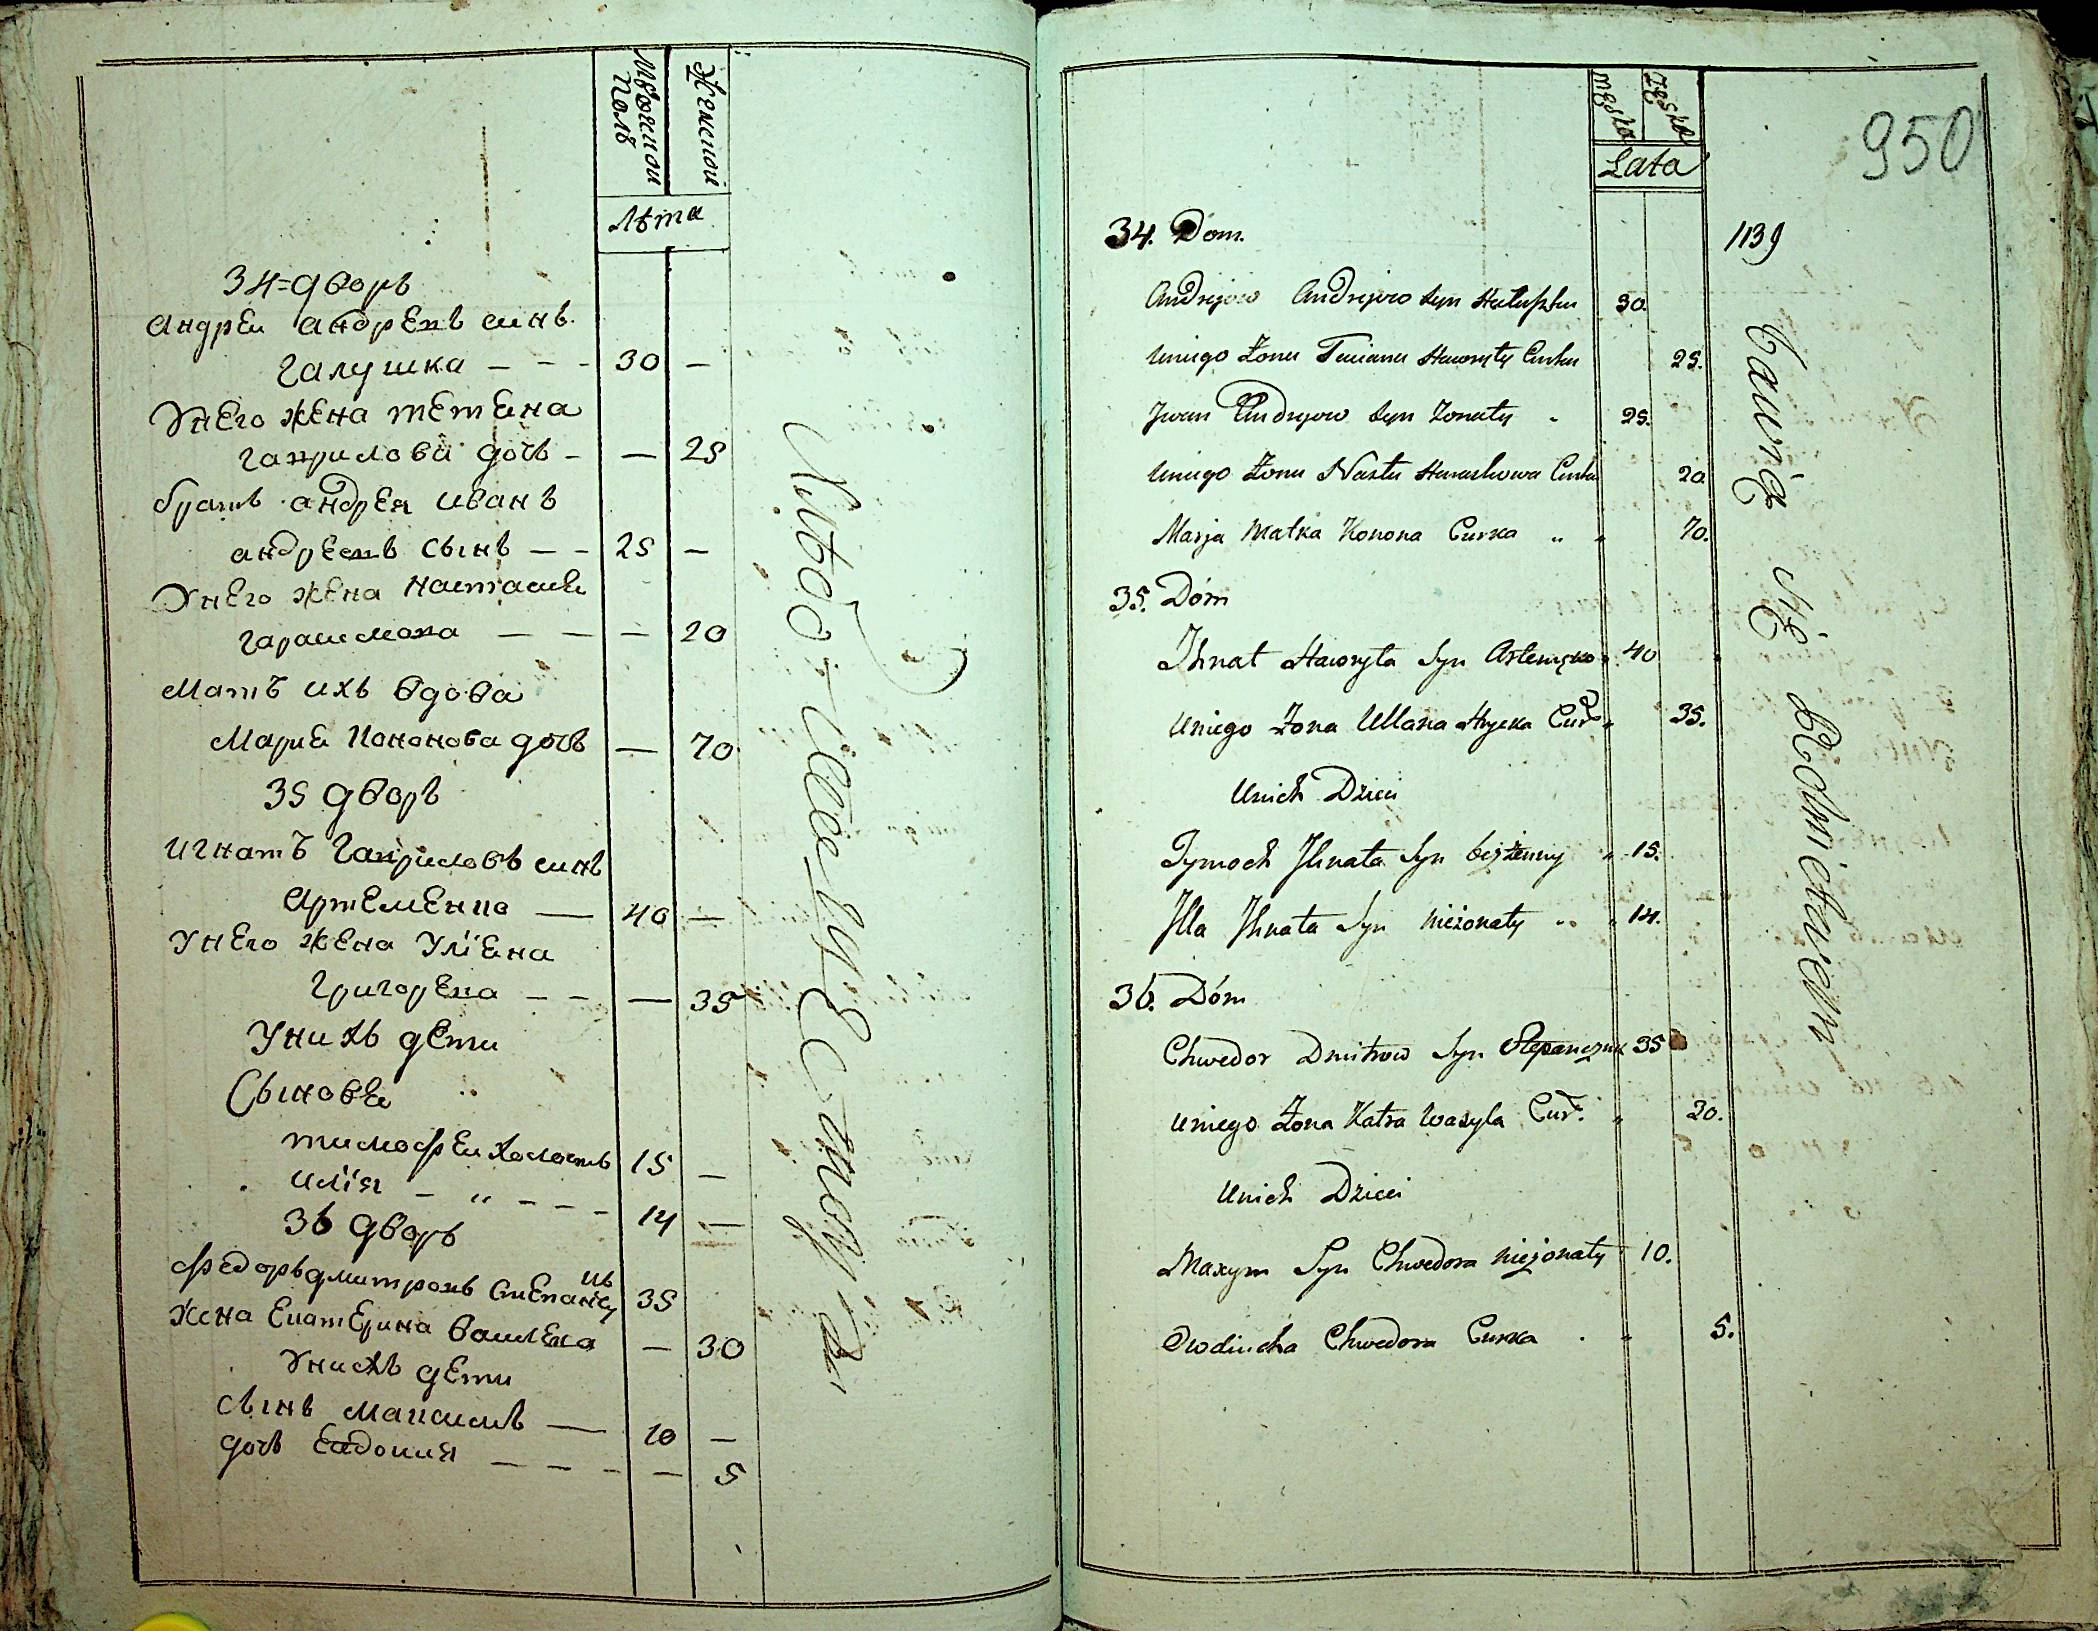 Мѣжской Полъ
Женской
Лѣта
34=дворъ
Андреи андреевъ синъ
галушка — — - 30 —
Унего жена тетяна
гаврилова дочь - — 25
братъ андрея иванъ
андреевъ сынъ — - 25 —
Унего жена настасия
гарасимова — — — 20
Мать ихъ вдова
Мария Кононова дочь — 70
35 дворъ
Игнатъ Гавриловъ синъ
Артеменко — 40 —
Унего жена Улiяна
григорева — - — 35
Унихъ дети
Сыновья
тимофеи холостъ 15 —
илiя - " - - - 14 —
36 дворъ
Федоръ дмитровъ Степанчукъ 35
жена Екатерина василева — 30
Унихъ дети
сынъ максимъ — 10 —
дочь Евдокия — — - — 5
męska
żęska
Lata
950
34. Dom.
1139
Andrejow Andrejow syn Hałuszka 30.
Uniego Żona Taciana Hawryły Curka 25.
Jwan Andrejow syn Żonaty - 25.
Uniego Żona Nasta Haraskowa Curka 20
Marja Matka Konona Curka " " 70.
35. Dóm
Jhnat Hawryła Syn Artemęko " 40
Uniego Żona Ullana Hrycka Cur. " 35.
Unich Dzieci
Tymoch Jhnata Syn beżenny " 15.
Jlla Jhnata Syn nieżonaty " " 14.
36. Dóm
Chwedor Dmitrow Syn Stepanczuk 35
Uniego Żona Katra Wasyla Cur. " 30.
Unich Dzieci
Maxym Syn Chwedora nieżonaty " 10.
Owdiucha Chwedora Curka . " 5.